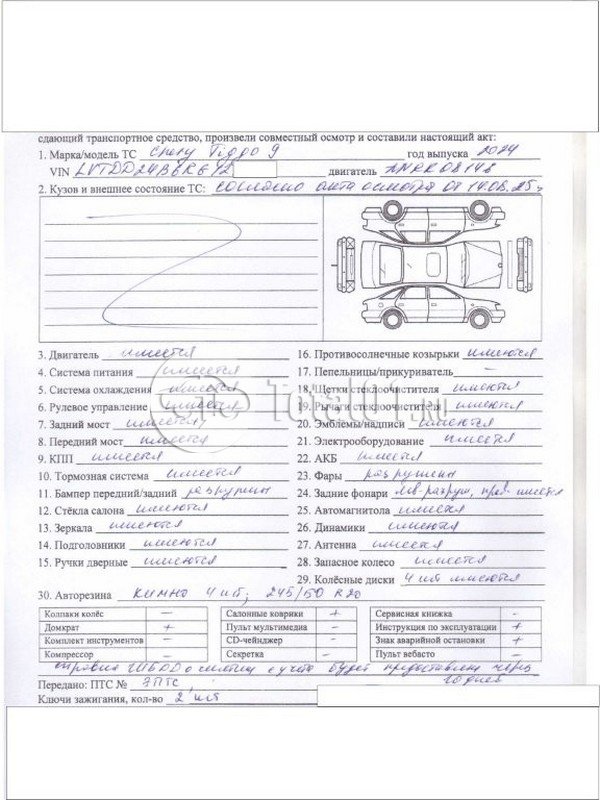 сдающий транспортное средство, произвели совместный осмотр и составили настоящий акт:
1. Марка/модель ТС Chery Tiggo 9 год выпуска 2024
VIN LVTDD24B6RG двигатель
2. Кузов и внешнее состояние ТС: согласно акта осмотра от 14.08.25г
3. Двигатель имеется
4. Система питания имеется
5. Система охлаждения имеется
6. Рулевое управление имеется
7. Задний мост имеется
8. Передний мост имеется
9. КПП имеется
10. Тормозная система имеется
11. Бампер передний/задний разрушены
12. Стёкла салона имеются
13. Зеркала имеются
14. Подголовники имеются
15. Ручки дверные имеются
16. Противосолнечные козырьки имеются
17. Пепельницы/прикуриватель –
18. Щетки стеклоочистителя имеются
19. Рычаги стеклоочистителя имеются
20. Эмблемы/надписи имеются
21. Электрооборудование имеется
22. АКБ имеется
23. Фары разрушены
24. Задние фонари лев-разруш, прав. имеется
25. Автомагнитола имеется
26. Динамики имеются
27. Антенна имеется
28. Запасное колесо имеется
29. Колёсные диски 4 шт имеются
Total01.ru
30. Авторезина Кумхо 4 шт; 245/50 R20
Колпаки колёс – Салонные коврики + Сервисная книжка –
Домкрат + Пульт мультимедиа – Инструкция по эксплуатации +
Комплект инструментов – CD-чейнджер – Знак аварийной остановки +
Компрессор – Секретка – Пульт вебасто –
справка ГИБДД о снятии с учета будет предоставлена через
10 дней
Передано: ПТС № ЭПТС
Ключи зажигания, кол-во 2 шт